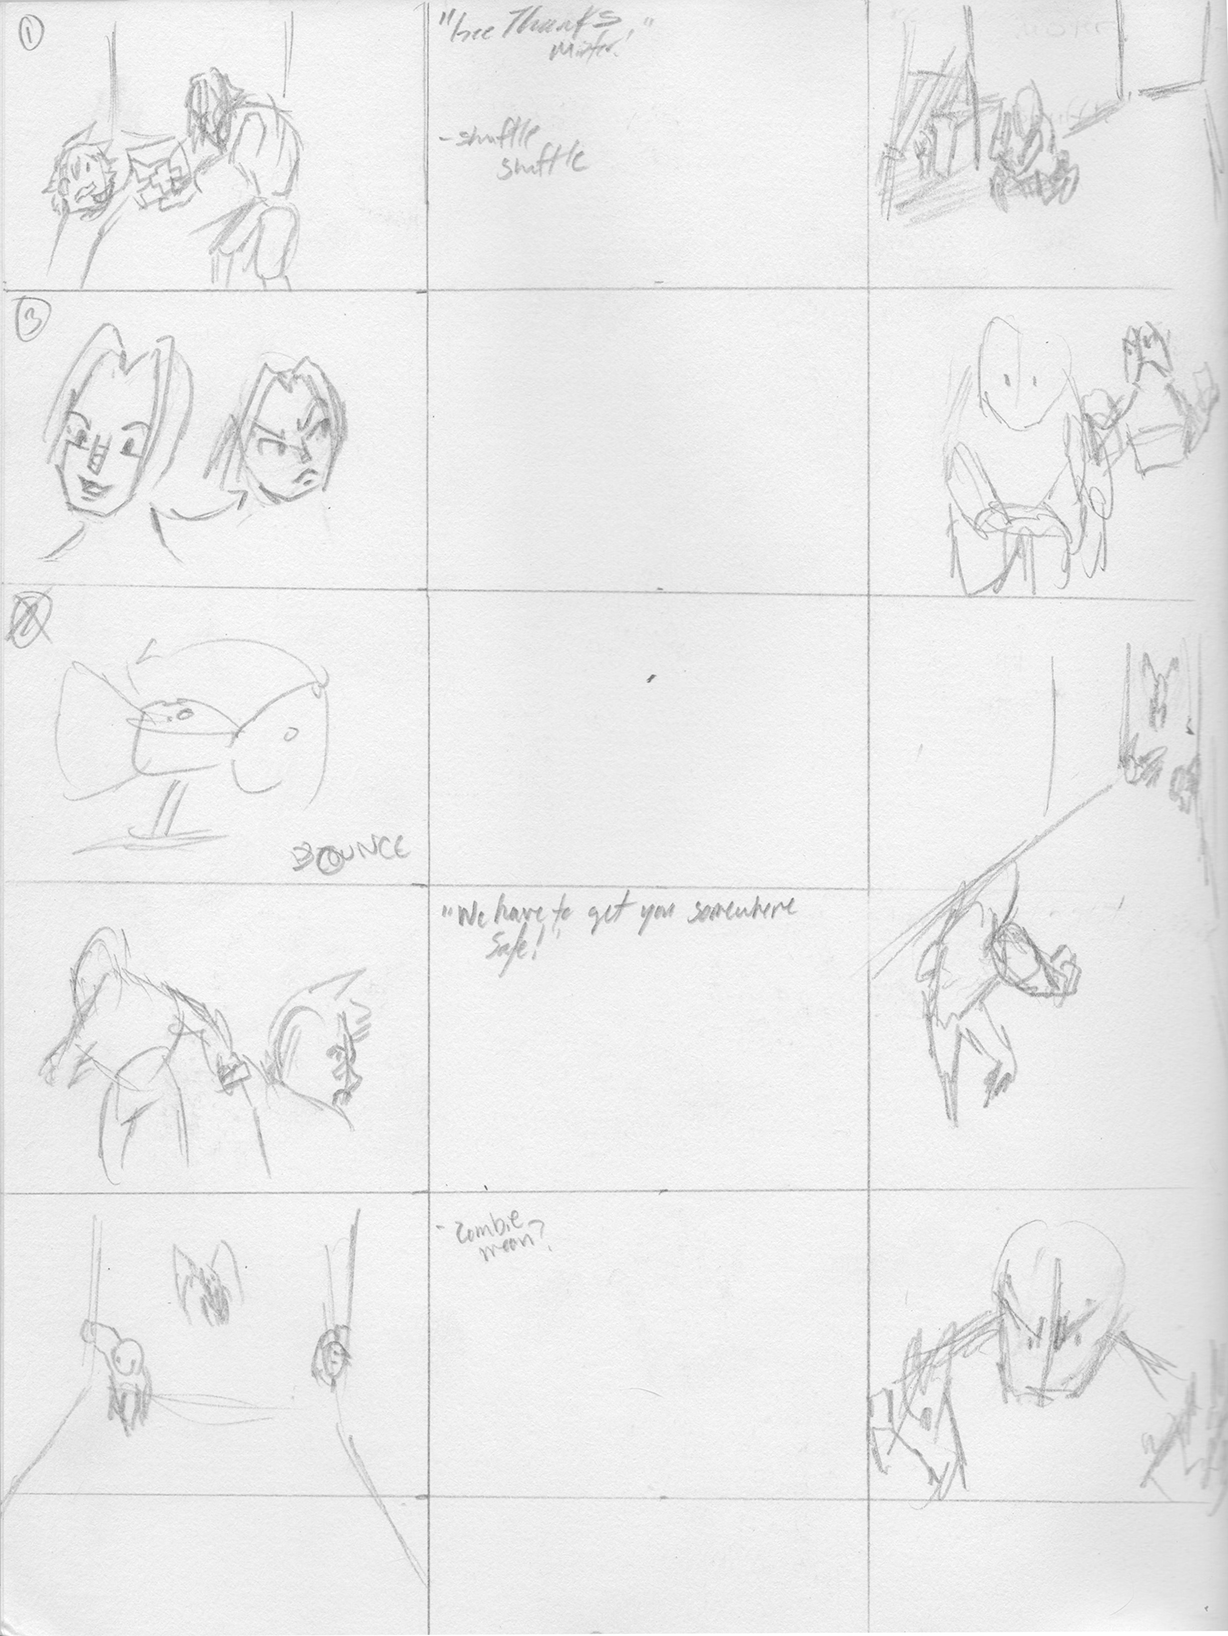 1
"Gee Thanks
Mister!"
-shuffle
shuffle
3
BOUNCE
"We have to get you somewhere
Safe!"
- zombie
moan?